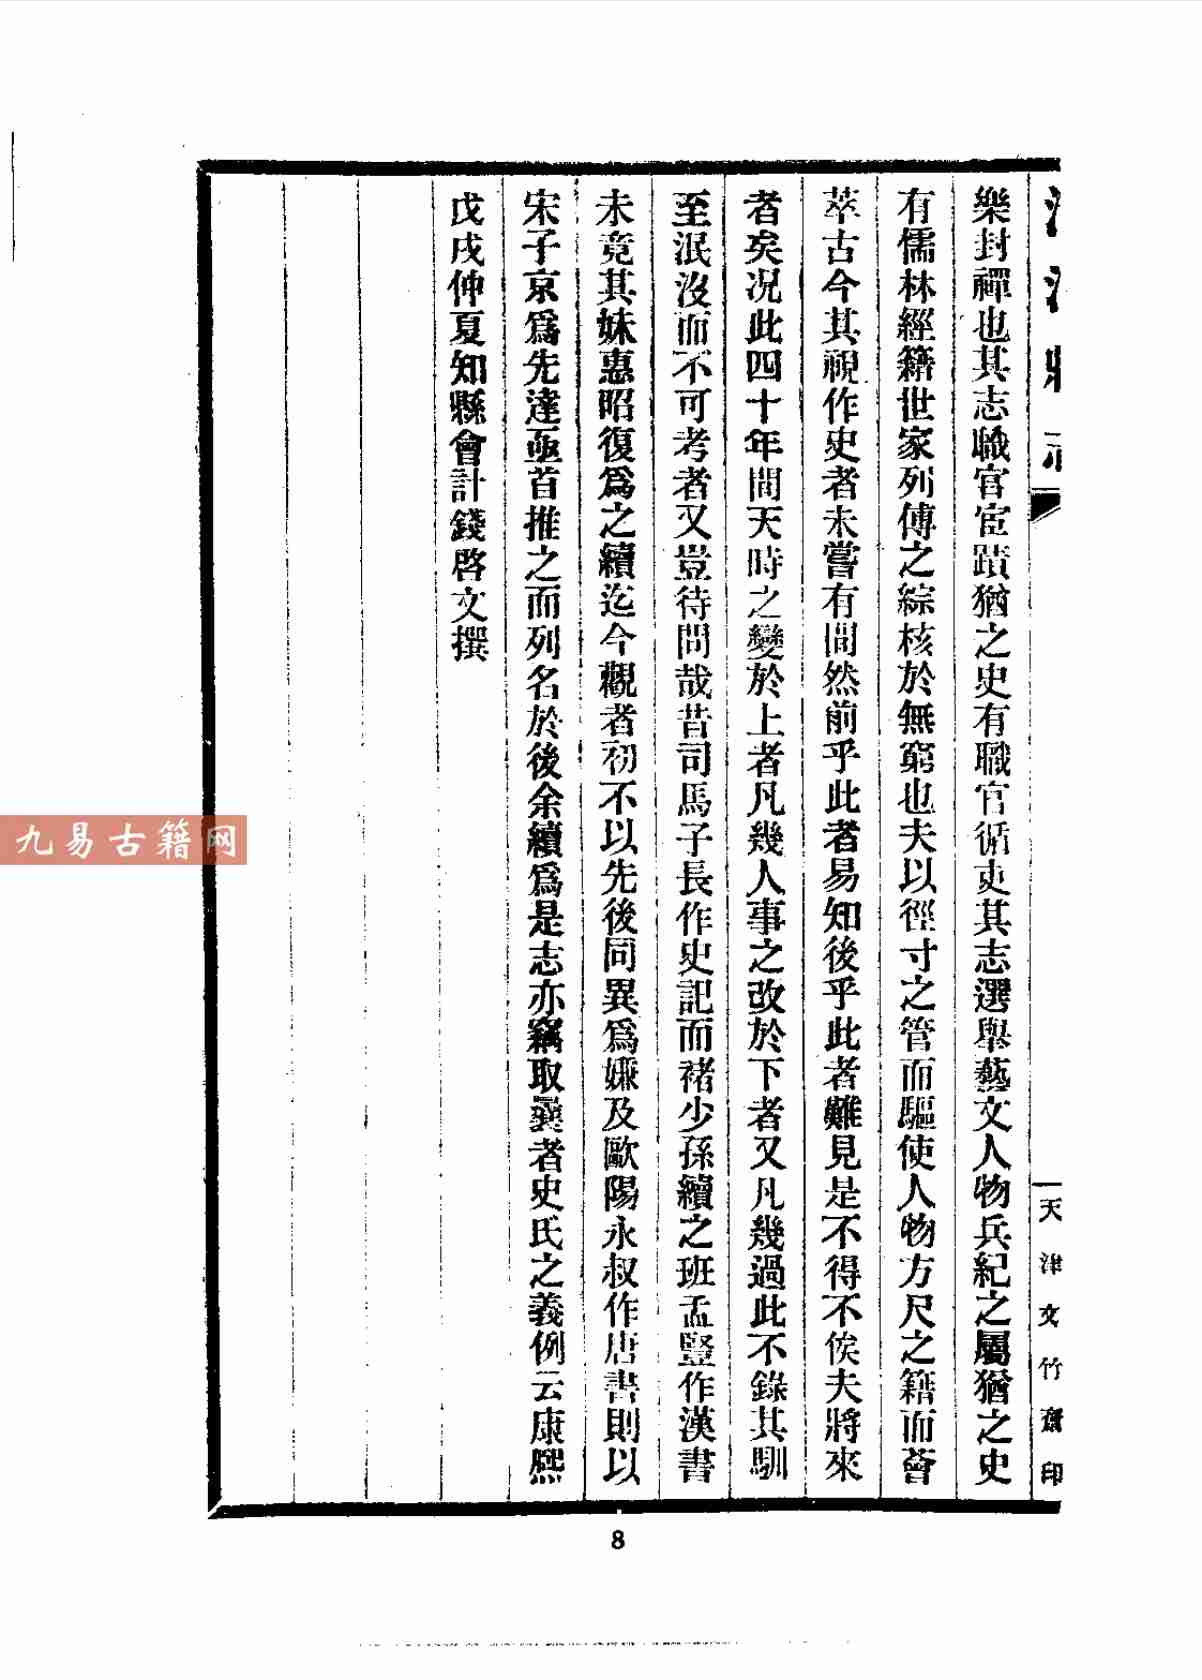 樂封禪也其志職官宦蹟猶之史有職官循吏其志選舉藝文人物兵紀之屬猶之史
有儒林經籍世家列傳之綜核於無窮也夫以徑寸之管而驅使人物方尺之籍而薈
萃古今其視作史者未嘗有間然前乎此者易知後乎此者難見是不得不俟夫將來
者矣况此四十年間天時之變於上者凡幾人事之改於下者又凡幾過此不錄其馴
至泯沒而不可考者又豈待問哉昔司馬子長作史記而褚少孫續之班孟堅作漢書
未竟其妹惠昭復爲之續迄今觀者初不以先後同異爲嫌及歐陽永叔作唐書則以
宋子京爲先達亟首推之而列名於後余續爲是志亦竊取曩者史氏之義例云康熙
戊戌仲夏知縣會計錢啓文撰
天津文竹齋印
8
九易古籍网